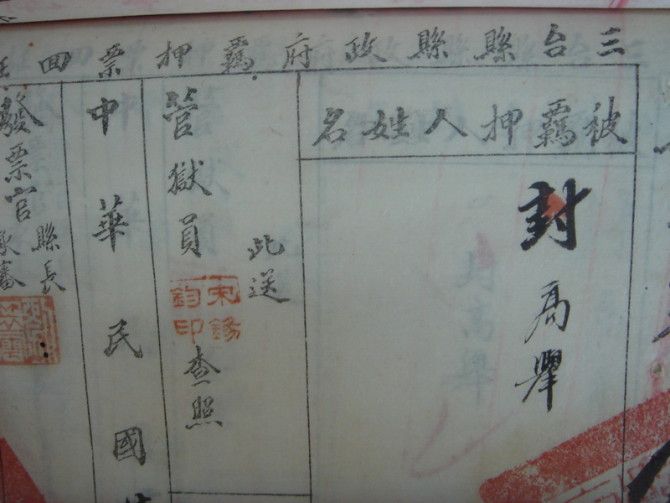 三台縣縣政府羈押票回
被羈押人姓名
封高舉
此送
管獄員 查照
中華民國
發票官 縣長
承審